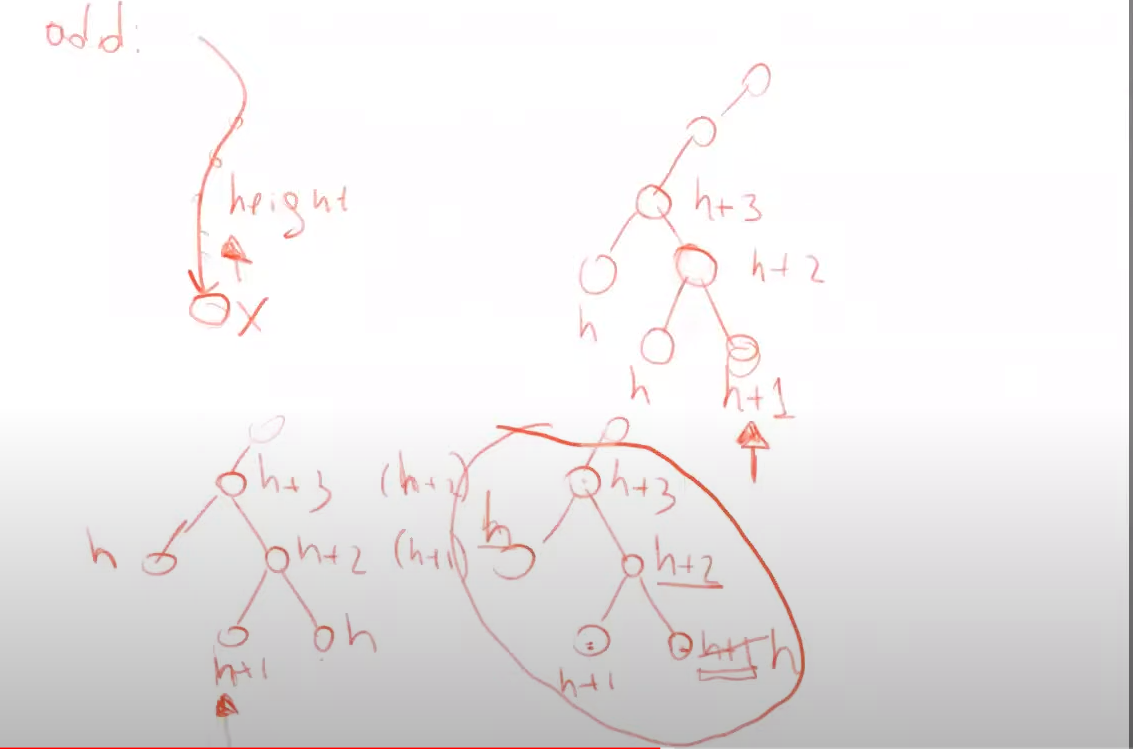 add:
height
x
h+3
h+2
h
h
h+1
h+3 (h+2)
h
h+2 (h+1)
h+1
h
h+3
h
h+2
h+1
h+1 h